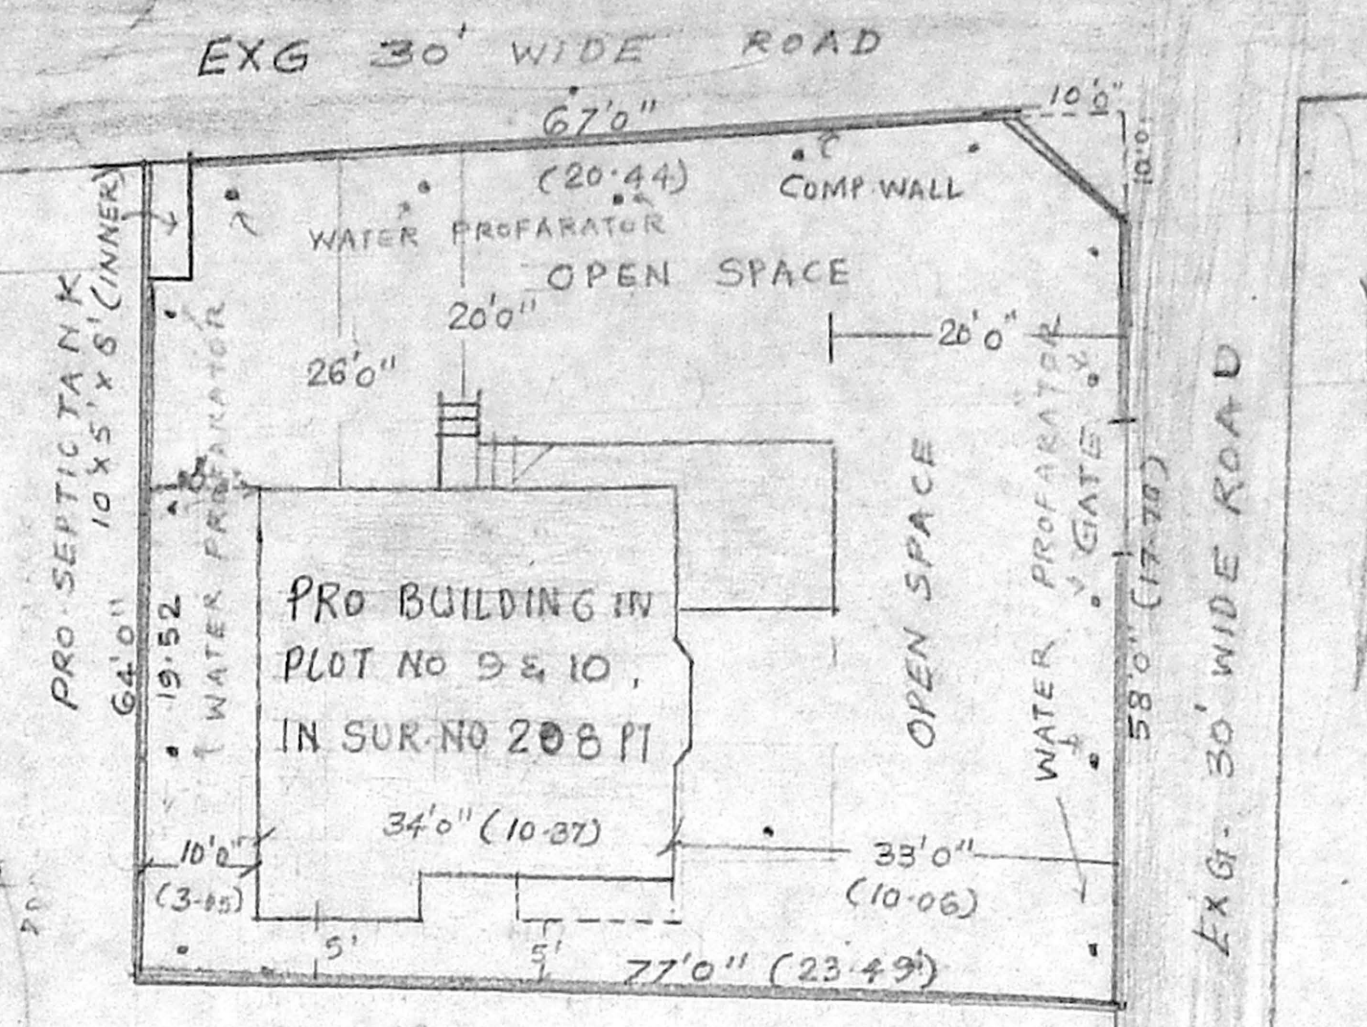 EXG 30' WIDE ROAD
10'0"
67'0"
10'0
(20·44)
COMP·WALL
WATER PROFARATOR
OPEN SPACE
20'0"
20'0"
26'0"
PRO·SEPTIC TANK
10'x5'x6'(INNER)
WATER PROFARATOR
64'0"
19·52
PRO BUILDING IN
PLOT NO 9 & 10,
IN SUR·NO 208 PT
34'0" (10·37)
OPEN SPACE
WATER PROFARATOR
GATE
58'0" (17·70)
EXG· 30' WIDE ROAD
10'0"
(3·05)
33'0"
(10·06)
5'
5'
77'0" (23·49)